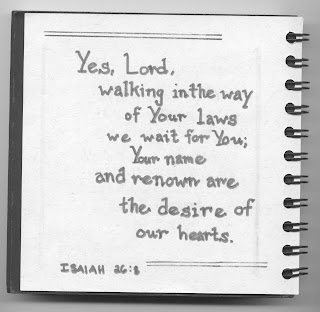 Yes, Lord,
walking in the way
of Your laws
we wait for You;
Your name
and renown are
the desire of
our hearts.
ISAIAH 26:8